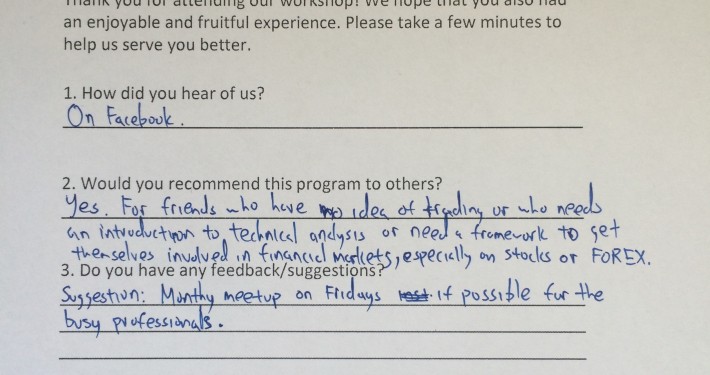 Thank you for attending our workshop! We hope that you also had
an enjoyable and fruitful experience. Please take a few minutes to
help us serve you better.
1. How did you hear of us?
On Facebook.
2. Would you recommend this program to others?
Yes. For friends who have no idea of trading or who needs
an introduction to technical analysis or need a framework to get
themselves involved in financial markets, especially on stocks or FOREX.
3. Do you have any feedback/suggestions?
Suggestion: Monthy meetup on Fridays if possible for the
busy professionals.